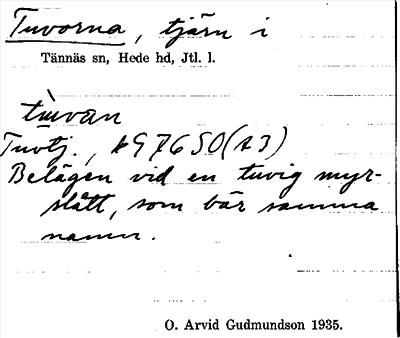 Tuvorna, tjärn i
Tännäs sn, Hede hd, Jtl. l.
tùvan
Tuvtj., A97650(A3)
Belägen vid en tuvig myr-
slått, som bär samma
namn.
O. Arvid Gudmundson 1935.